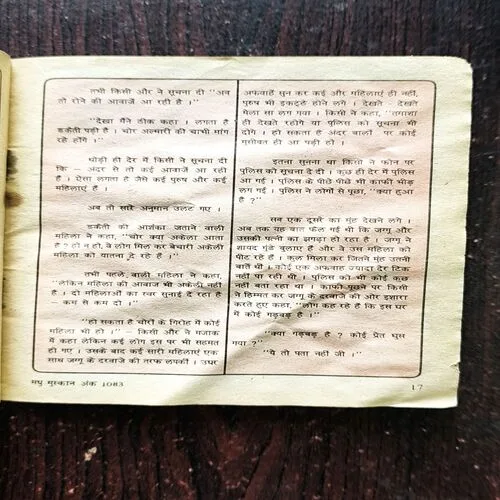 तभी किसी और ने सूचना दी "अब
तो रोने की आवाजें आ रही हैं ।"
"देखा मैंने ठीक कहा । लगता है
डकैती पड़ी है । चोर अल्मारी की चाभी मांग
रहे होंगे ।"
थोड़ी ही देर में किसी ने सूचना दी
कि — अंदर से तो कई आवाजें आ रही
हैं । ऐसा लगता है जैसे कई पुरुष और कई
महिलाएं हैं ।
अब तो सारे अनुमान उलट गए ।
डकैती की आशंका जताने वाली
महिला ने कहा, "चोर क्या अकेला आता
है ? हो न हो, वे लोग मिल कर बेचारी अकेली
महिला को यातना दे रहे हैं ।"
तभी पहले वाली महिला ने कहा,
"लेकिन महिला की आवाज भी अकेली नहीं
है । दो महिलाओं का स्वर सुनाई दे रहा है
— कम से कम दो ।"
"हो सकता है चोरों के गिरोह में कोई
महिला भी हो ।" — किसी और ने मजाक
में कहा लेकिन कई लोग इस पर भी सहमत
हो गए । उसके बाद कई सारी महिलाएं एक
साथ जग्गू के दरवाजे की तरफ लपकीं । उधर
मधु मुस्कान अंक 1083
अफवाहें सुन कर कई और महिलाएं ही नहीं,
पुरुष भी इकट्ठे होने लगे । देखते - देखते
मेला सा लग गया । किसी ने कहा, "तमाशा
ही देखते रहोगे या पुलिस को सूचना भी
दोगे । हो सकता है अंदर वालों पर कोई
मुसीबत ही आ पड़ी हो ।
इतना सुनना था किसी ने फोन पर
पुलिस को सूचना दे दी । कुछ ही देर में पुलिस
आ गई । पुलिस के पीछे पीछे भी काफी भीड़
लग गई । पुलिस ने लोगों से पूछा, "क्या हुआ
है ?"
सब एक दूसरे का मुंह देखने लगे ।
अब तक यह बात फैल गई थी कि जग्गू और
उसकी पत्नी का झगड़ा हो रहा है । जग्गू ने
शायद गुंडे बुलाए हैं और वे उस महिला को
पीट रहे हैं । कुल मिला कर जितने मुंह उतनी
बातें थीं । कोई एक अफवाह ज्यादा देर टिक
नहीं पा रही थी । पुलिस को भी कोई कुछ
नहीं बता रहा था । काफी पूछने पर किसी
ने हिम्मत कर जग्गू के दरवाजे की ओर इशारा
करते हुए कहा, "लोग कह रहे हैं कि इस घर
में कोई गड़बड़ है ।"
"क्या गड़बड़ है ? कोई प्रेत घुस
गया ?"
"ये तो पता नहीं जी ।"
17